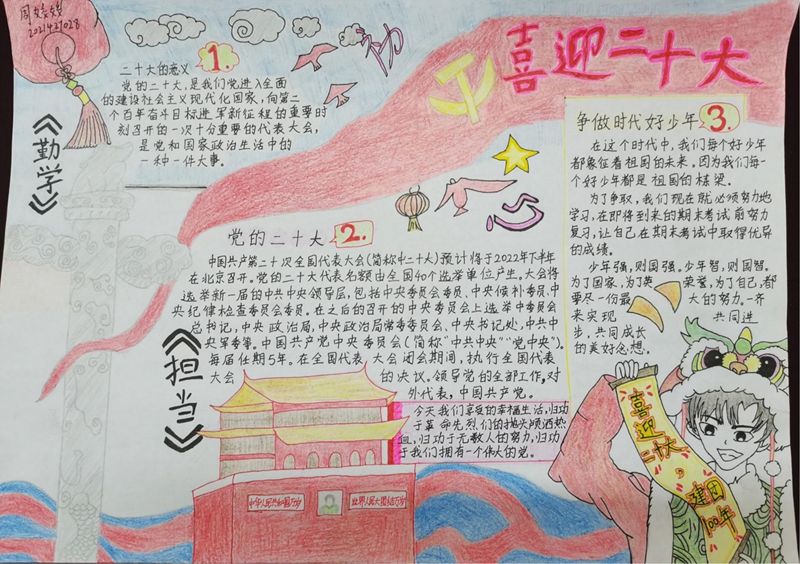 周婷婷
2021427028
喜迎二十大
1.
二十大的意义
党的二十大,是我们党进入全面
的建设社会主义现代化国家,向第二
个百年奋斗目标进军新征程的重要时
刻召开的一次十分重要的代表大会,
是党和国家政治生活中的
一种一件大事。
《勤学》
2.
党的二十大
中国共产第二十次全国代表大会(简称中二十大)预计将于2022年下半年
在北京召开。党的二十大代表名额由全国40个选举单位产生。大会将
选举新一届的中共中央领导层,包括中央委员会委员、中央候补委员、中
央纪律检查委员会委员。在之后的召开的中央委员会上选举中委员会
总书记,中央政治局,中央政治局常委委员、中央书记处,中共中
央军委等。中国共产党中央委员会(简称“中共中央”“党中央”)。
每届任期5年。在全国代表大会闭会期间,执行全国代表
大会的决议。领导党的全部工作,对
外代表,中国共产党。
《担当》
今天我们享受的幸福生活,归功
于革命先烈们的抛头颅洒热
血,归功于无数人的努力,归功
于我们拥有一个伟大的党。
3.
争做时代好少年
在这个时代中,我们每个好少年
都象征着祖国的未来。因为我们每一
个好少年都是祖国的栋梁。
为了争取,我们现在就必须努力地
学习,在即将到来的期末考试前努力
复习,让自己在期末考试中取得优异
的成绩。
少年强,则国强。少年智,则国智。
为了国家,为了英荣誉,为了自己,都
要尽一份最大的努力。一齐
来实现共同进
步,共同成长
的美好念想。
中华人民共和国万岁
世界人民大团结万岁
喜迎二十大
建团
100年